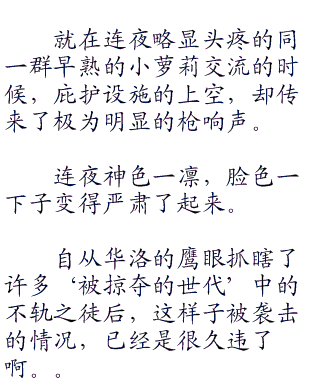 就在连夜略显头疼的同
一群早熟的小萝莉交流的时
候，庇护设施的上空，却传
来了极为明显的枪响声。
连夜神色一凛，脸色一
下子变得严肃了起来。
自从华洛的鹰眼抓瞎了
许多‘被掠夺的世代’中的
不轨之徒后，这样子被袭击
的情况，已经是很久违了
啊。。